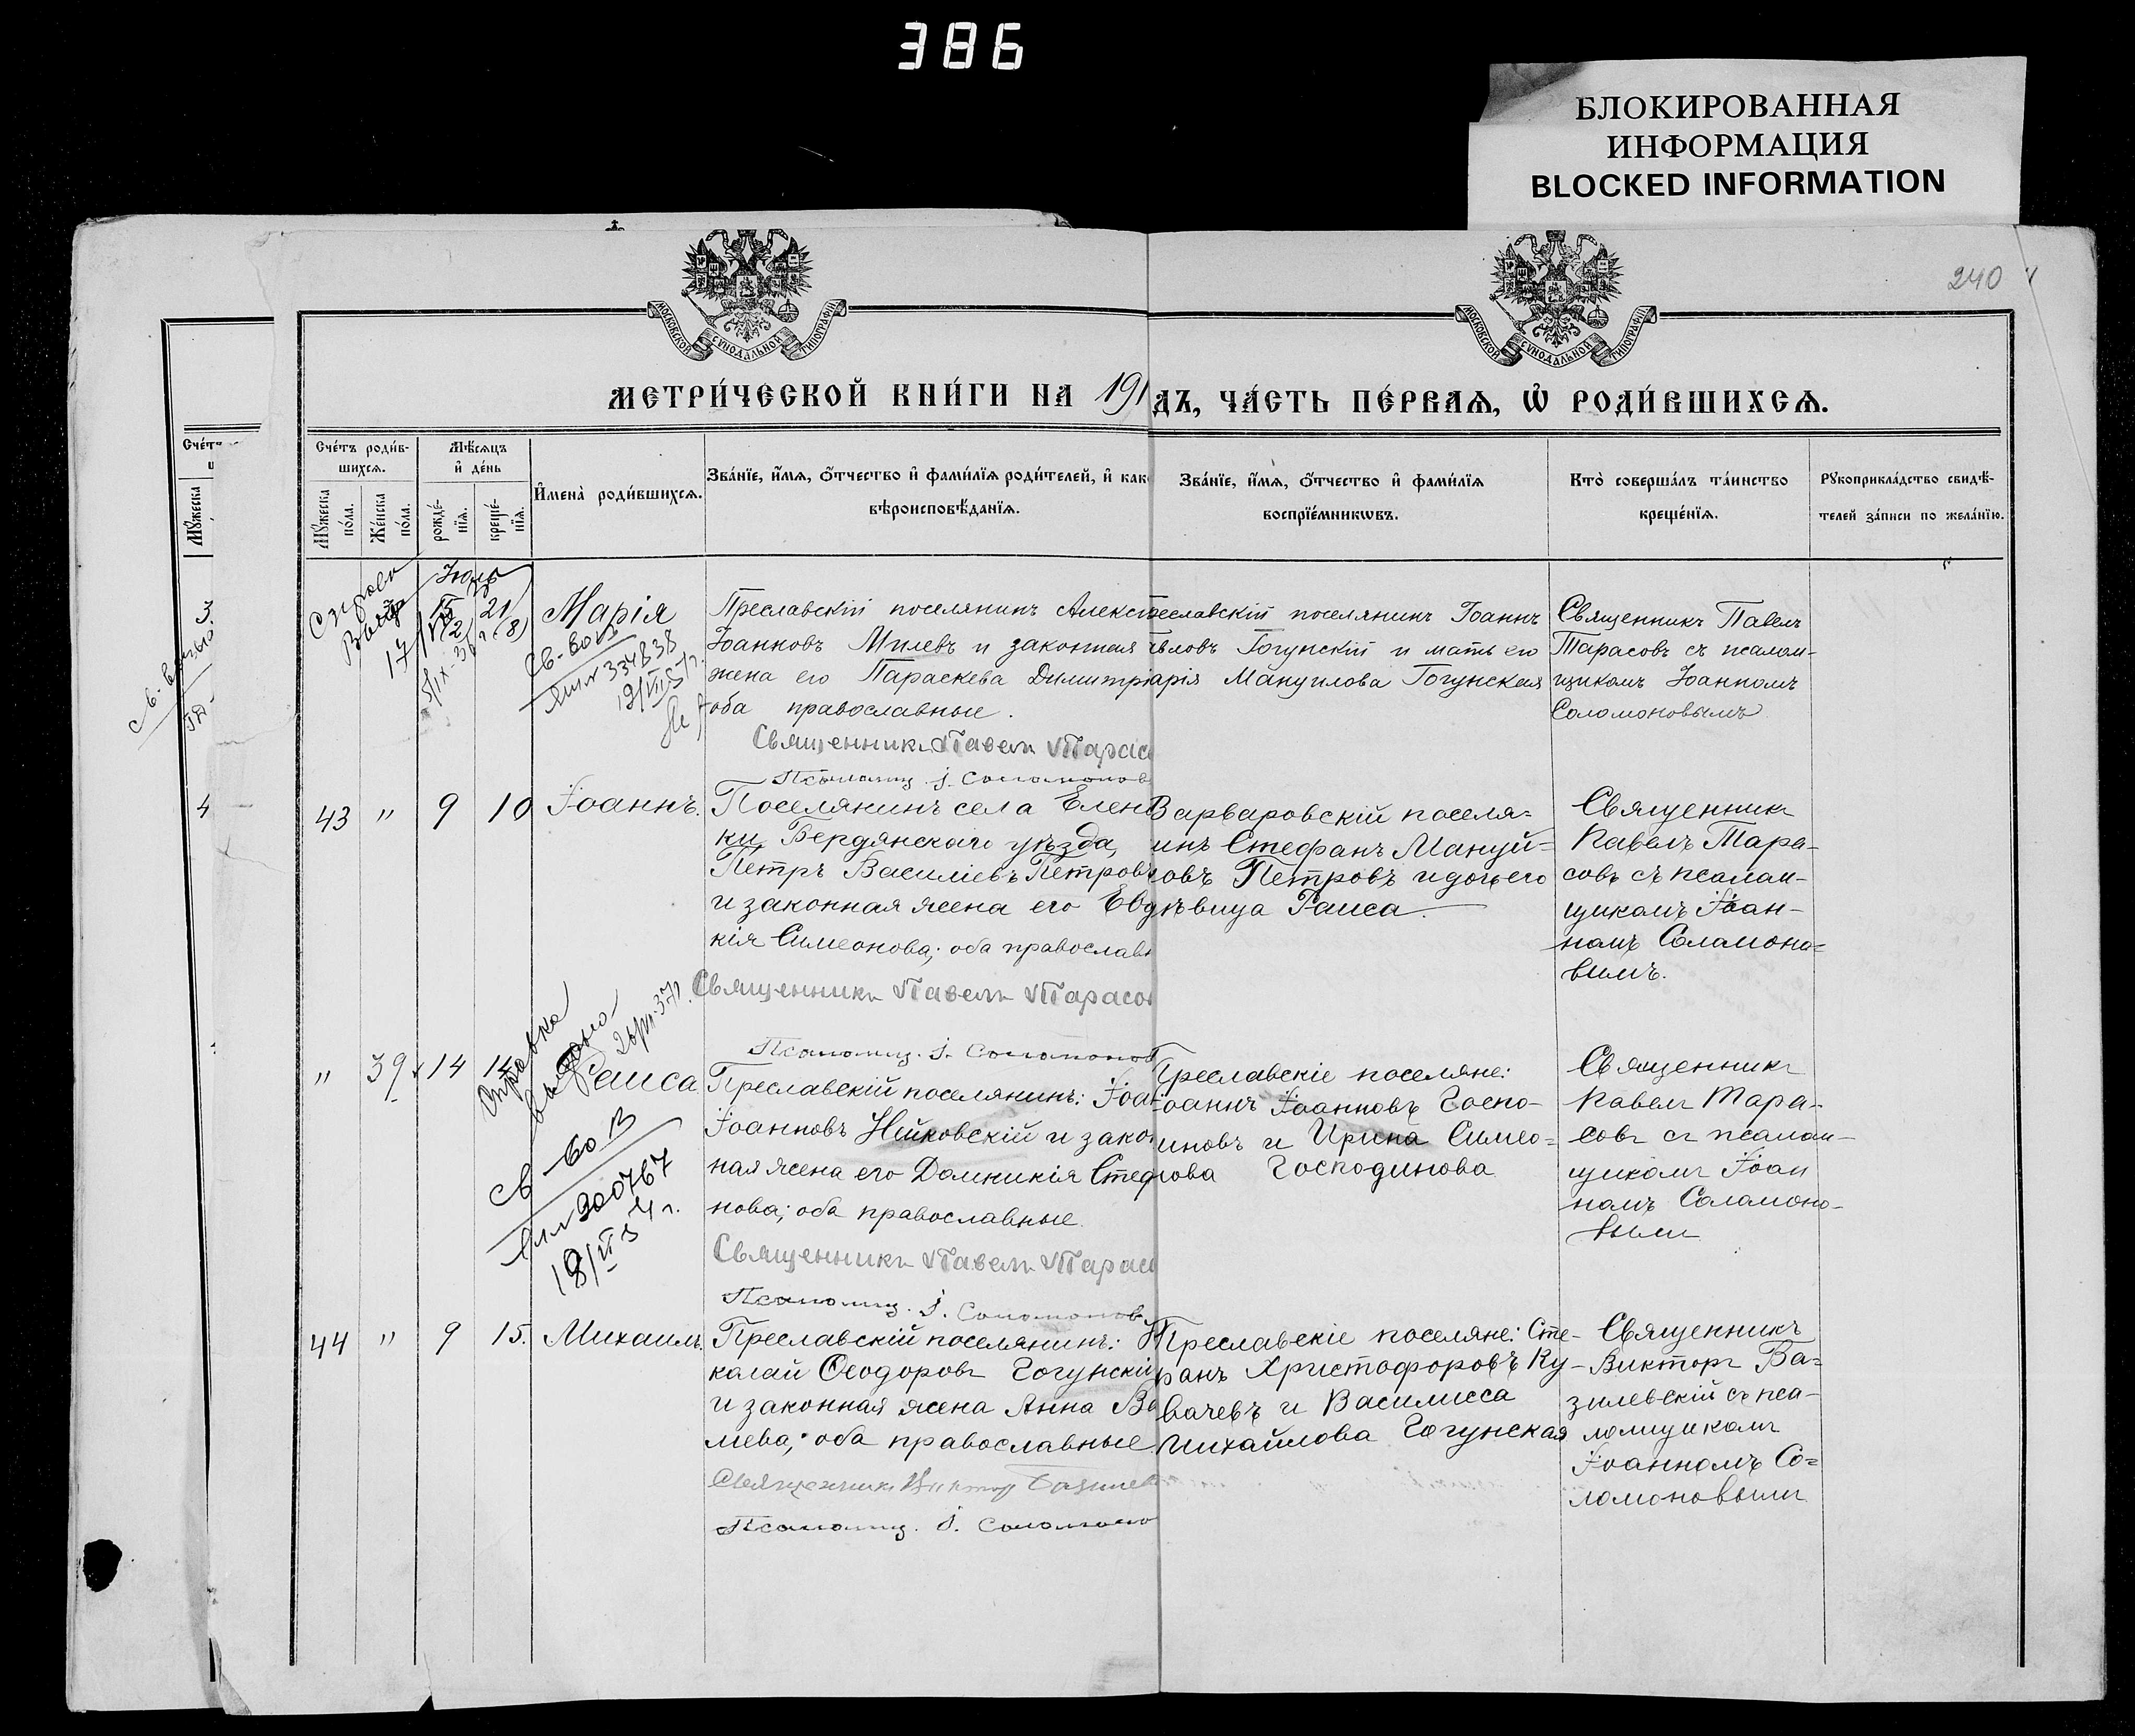 386
БЛОКИРОВАННАЯ
ИНФОРМАЦИЯ
BLOCKED INFORMATION
240
МОСКОВСКОЙ СѴНОДАЛЬНОЙ ТИПОГРАФІИ
МОСКОВСКОЙ СѴНОДАЛЬНОЙ ТИПОГРАФІИ
МЕТРИ́ЧЕСКОЙ КНИ́ГИ НА 191
ДЪ, ЧА́СТЬ ПЕ́РВАѦ, Ѡ РОДИ́ВШИХСѦ.
Сче́тъ роди́в-
шихсѧ.
Мꙋжеска по́ла.
Же́нска по́ла.
Мѣ́сѧцъ
и де́нь
рожде́-
нїѧ.
креще́-
нїѧ.
Имена̀ роди́вшихсѧ.
Зва́нїе, и́мѧ, ѻ́тчество и фами́лїѧ роди́телей, и как
вѣроисповѣ́данїѧ.
Зва́нїе, и́мѧ, ѻ́тчество и фами́лїѧ
воспрїе́мникѡвъ.
Кто̀ соверша́лъ та́инство
креще́нїѧ.
Рꙋкоприкла́дство свидѣ́-
телей за́писи по жела́нїю.
Іюль
21
Марія
Св-во
334838
Преславскій поселянинъ Алекс
Іоанковъ Милевъ и законная
жена его Параскева Димитр
оба православные.
Священникъ Павелъ Тарас
Псаломщ. І. Соломонов
еславскій поселянинъ Іоаннъ
ловъ Гогунскій и мать его
арія Мануилова Гогунская
Священникъ Павелъ
Тарасовъ съ псалом-
щикомъ Іоанномъ
Соломоновымъ
43 " 9 10 Іоаннъ.
Поселянинъ села Елен
ки Бердянскаго уѣзда,
Петръ Василіевъ Петров
и законная жена его Евдо
кія Симеонова; оба православн
Священникъ Павелъ Тарасов
Псаломщ. І. Соломонов
Варваровскій поселя-
инъ Стефанъ Мануй-
овъ Петровъ и дочь его
ѣвица Раиса
Священникъ
Павелъ Тара-
совъ съ псалом-
щикомъ Іоан-
номъ Соломоно-
вымъ.
Справка
выдано
" 39 14 14 Раиса
Св-во
200767
Преславскій поселянинъ: Іоан
Іоанновъ Нийковскій и закон
ная жена его Домникія Стеф
нова; оба православные.
Священникъ Павелъ Тарас
Псаломщ. І. Соломонов
Преславскіе поселяне:
Іоаннъ Іоанновъ Госпо-
иновъ и Ирина Симео-
нова Господинова
Священникъ
Павелъ Тара-
совъ съ псалом-
щикомъ Іоан
номъ Соломоно-
вымъ
44 " 9 15. Михаилъ.
Преславскій поселянинъ: Н
колай Ѳеодоровъ Гогунскій
и законная жена Анна Ва
лиева; оба православные
Священникъ Викторъ Базилев
Псаломщ. І. Соломоно
Преславскіе поселяне: Сте-
фанъ Христофоровъ Ку-
вачевъ и Василисса
Михайлова Гогунская
Священникъ
Викторъ Ба-
зилевскій съ пса-
ломщикомъ
Іоанномъ Со-
ломоновымъ